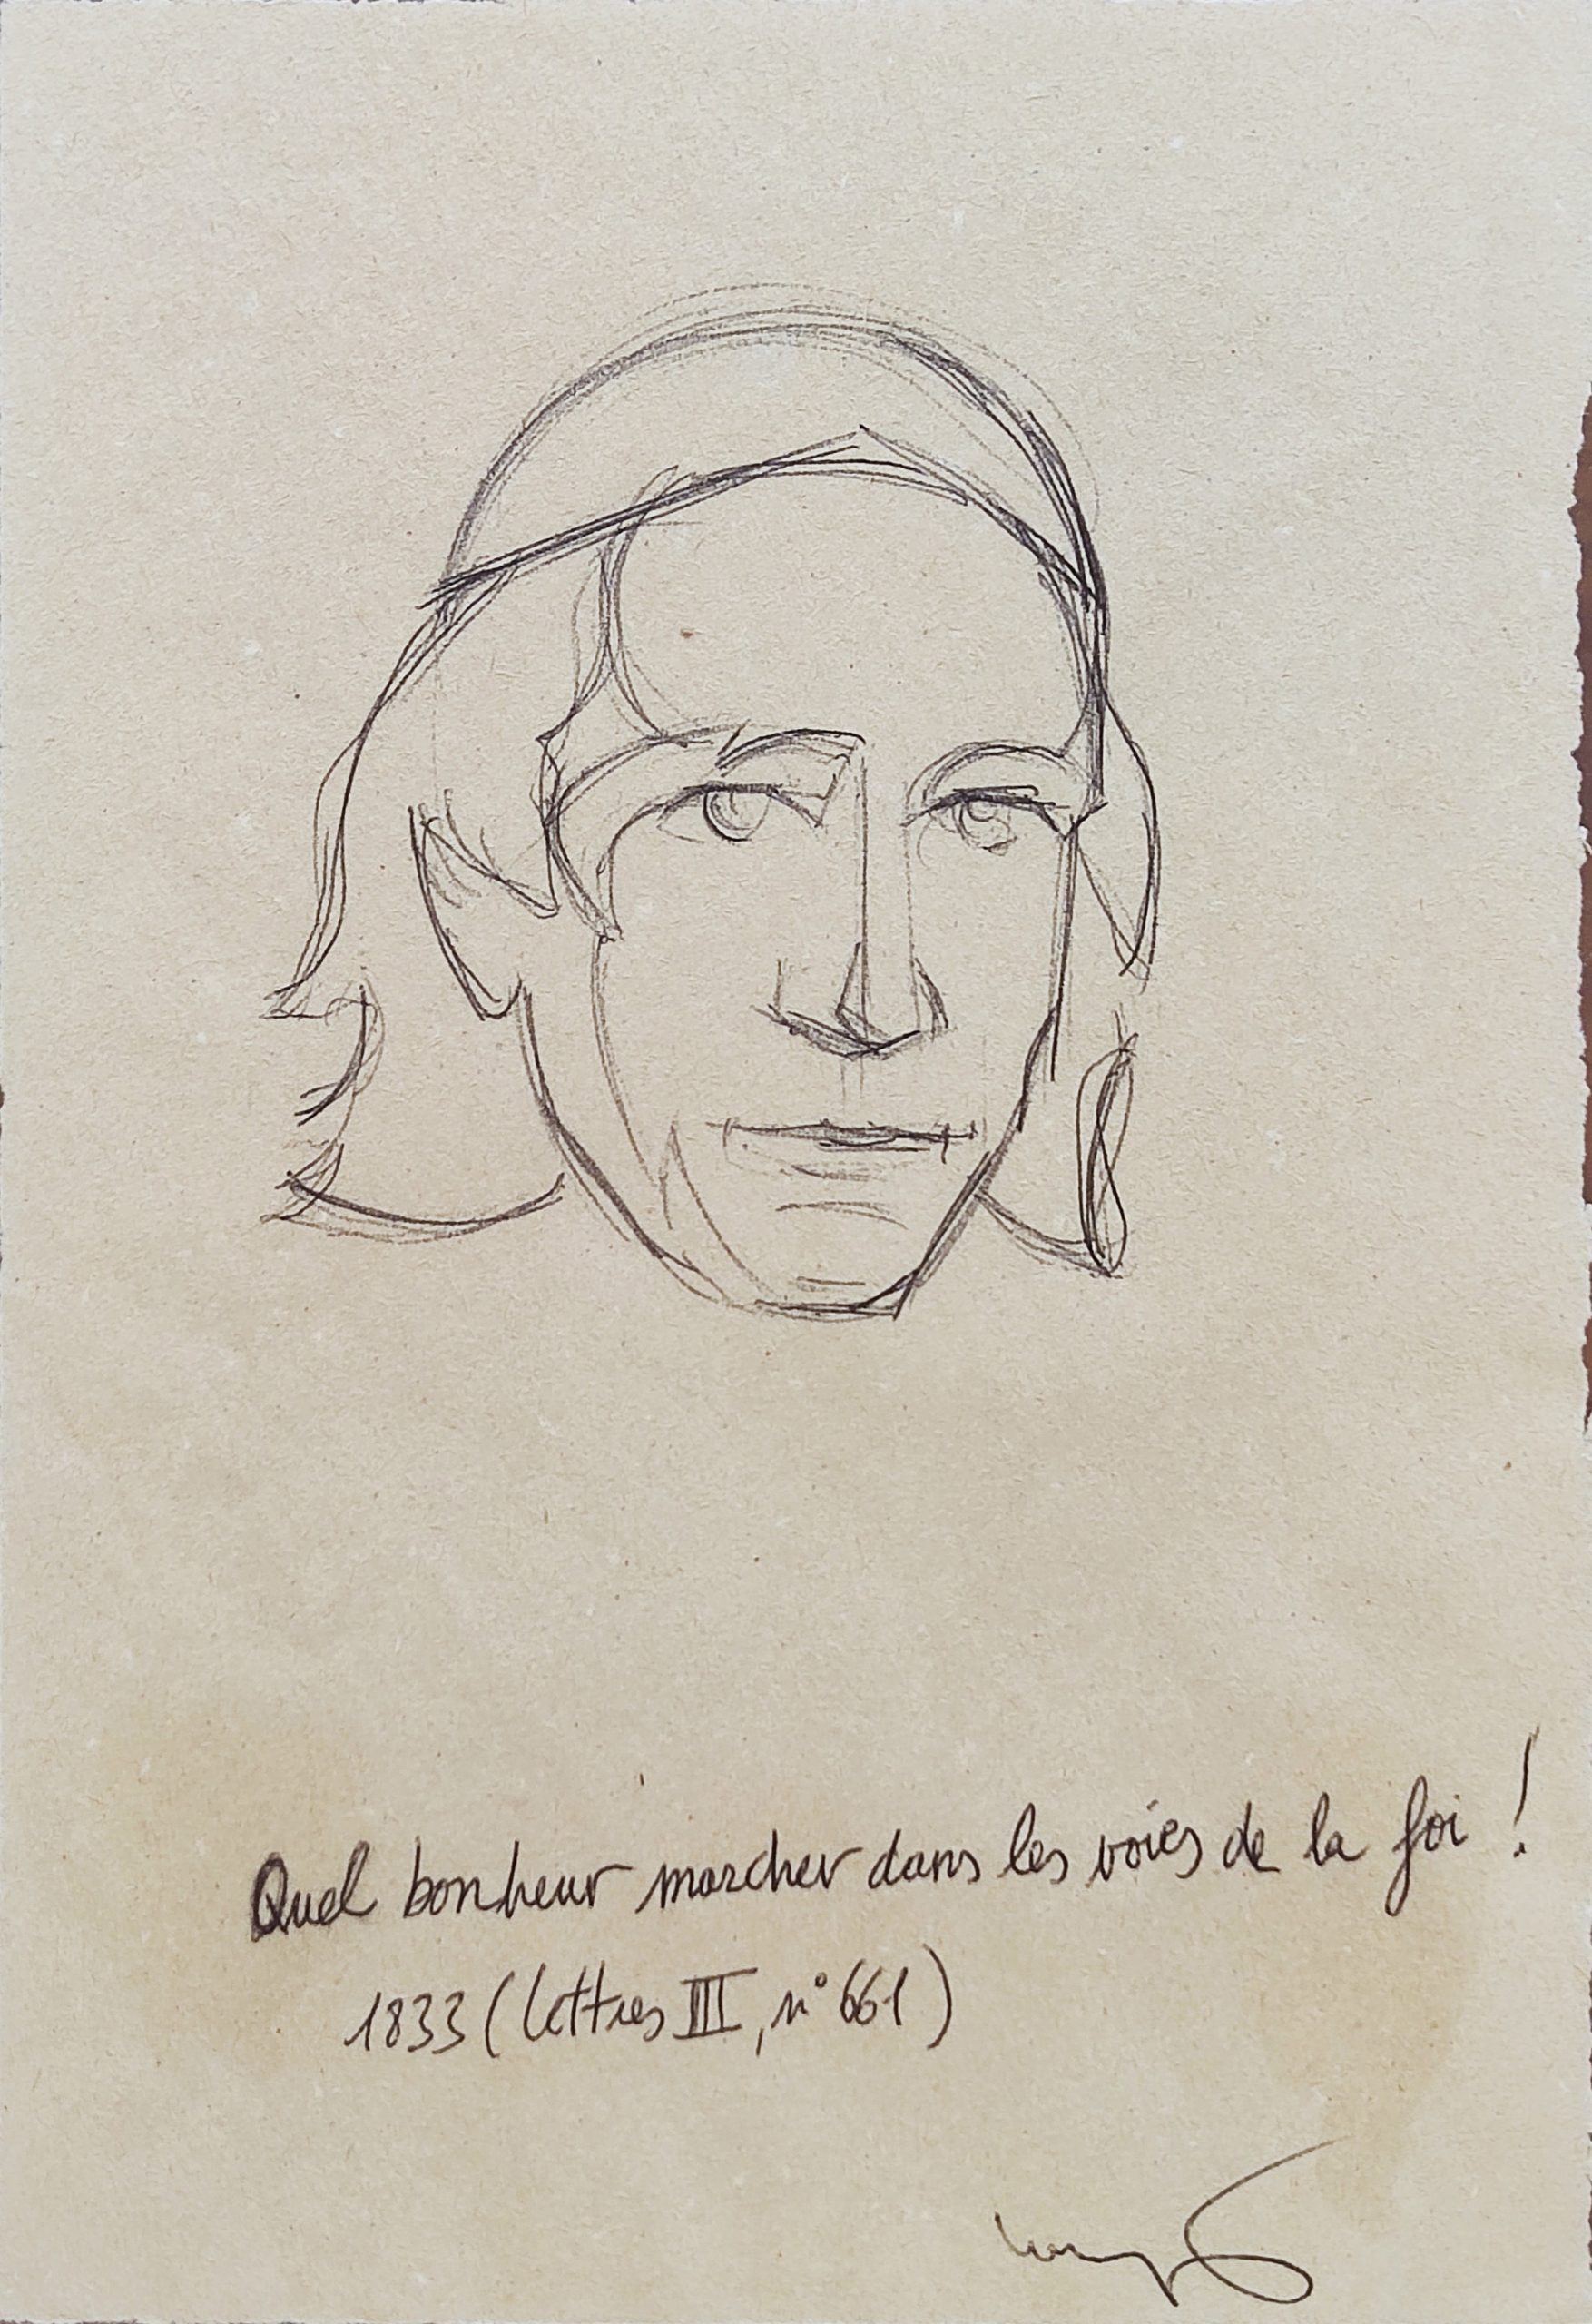 Quel bonheur marcher dans les voies de la foi !
1833 (lettres III, n° 661)